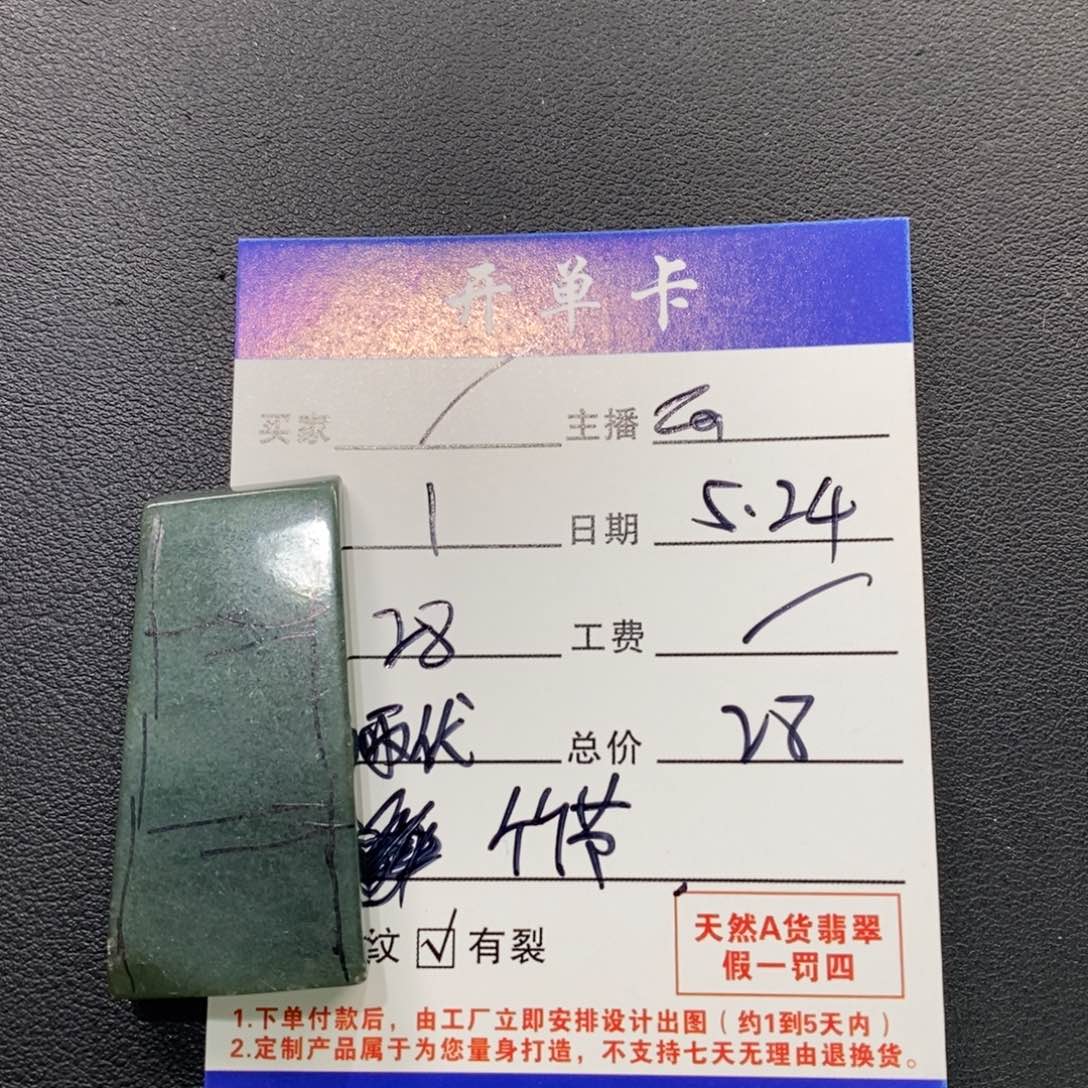 开单卡
买家 主播
1 日期 5.24
28 工费
总价 28
竹节
纹 ☑ 有裂
天然A货翡翠
假一罚四
1.下单付款后，由工厂立即安排设计出图（约1到5天内）
2.定制产品属于为您量身打造，不支持七天无理由退换货。